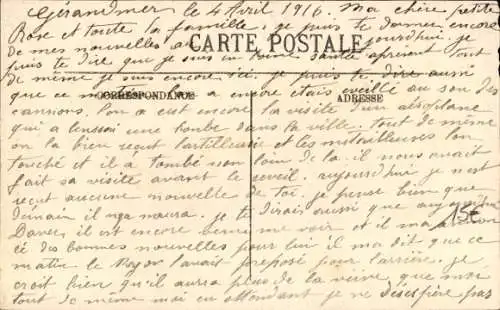 Gérardmer le 4 Avril 1916 Ma chère petite
Rose et toute la famille je puis te donner encore
de mes nouvelles aujourd'hui. je
CARTE POSTALE
puis te dire que je suis en bonne santé à présent tout
de même je suis encore ici. je puis te dire aussi
que ce matin l'on a encore étais éveillé au son des
CORRESPONDANCE
ADRESSE
canons. l'on a est encore la visite d'un aéroplane
qui a lenssoii une bombe dans la ville. tout de même
on la bien reçut l'artilleurie et les mitrailleuses l'on
touché et il a tombé non loin de la. il nous avait
fait sa visite avant le réveil. aujourd'hui je n'est
reçut aucune nouvelle de toi. je pense bien que
demain il n'y a naura. je te dirais aussi que
15€
Daver, il est encore venu me voir et il m'a
été des bonnes nouvelles pour lui il m'a dit que ce
matin le Major l'avait proposé pour l'arrière. je
croit bien qu'il aura plus de la veine que moi
tout de même moi en attendant je ne désespère pas